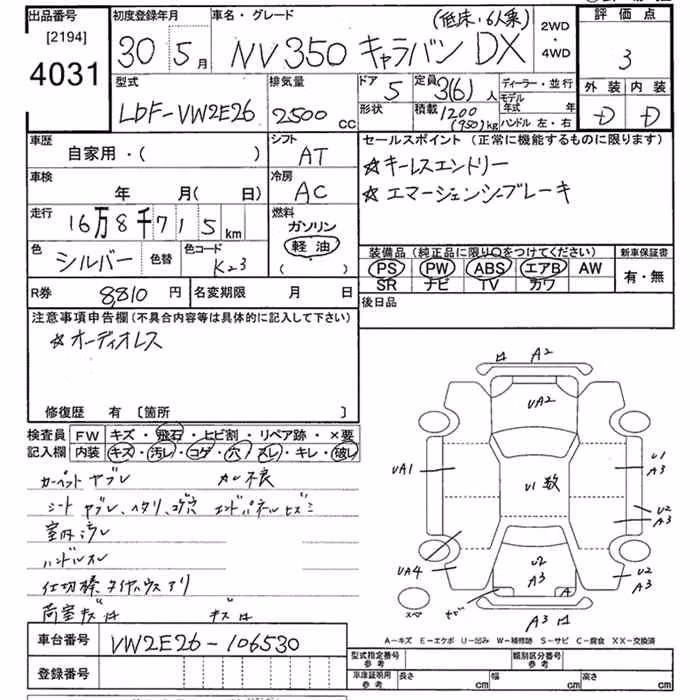 出品番号 初度登録年月 車名・グレード (低床・6人乗) 評価点
[2194] 30 5月 NV350 キャラバン DX 2WD・4WD 3
4031
型式 排気量 ドア 5 定員 3(6)人 ディーラー・並行 外装 内装
LDF-VW2E26 2500 CC 形状 積載 1200 (950)kg モデル年式 年 D D
ハンドル 左・右
車歴 シフト セールスポイント (正常に機能するものに限ります)
自家用・( ) AT ☆キーレスエントリー
車検 冷房 ☆エマージェンシーブレーキ
年 月(日) AC
走行 燃料
16万8千715km ガソリン
色 シルバー 色替 色コード K23 軽油 ( )
装備品 (純正品に限り○をつけてください) 新車保証書
PS PW ABS エアB AW 有・無
SR ナビ TV カワ
R券 8,810円 名変期限 月 日 後日品
注意事項申告欄(不具合内容等は具体的に記入して下さい)
☆オーディオレス
修復歴 有 [箇所 ]
検査員 FW キズ・飛石・ヒビ割・リペア跡・×要
記入欄 内装 キズ・汚レ・コゲ・穴・スレ・キレ・破レ
カーペット ヤブレ
シート ヤブレ、ヘタリ、コゲ穴 エンドパネルヒズミ
室内汚レ
ハンドルスレ
仕切棒 タイヤハウス アリ
荷室キズ
A2
UA2
UA1
U1数
U1
A3
U2
A3
UA4
U2
A3
U2
A3
A
A3
A-キズ E-エクボ U-凹み W-補修跡 S-サビ C-腐食 XX-交換済
車台番号 VW2E26-106530
型式指定番号 参考 類別区分番号 参考
登録番号 車庫証明用 参考 長さ cm 幅 cm 高さ cm